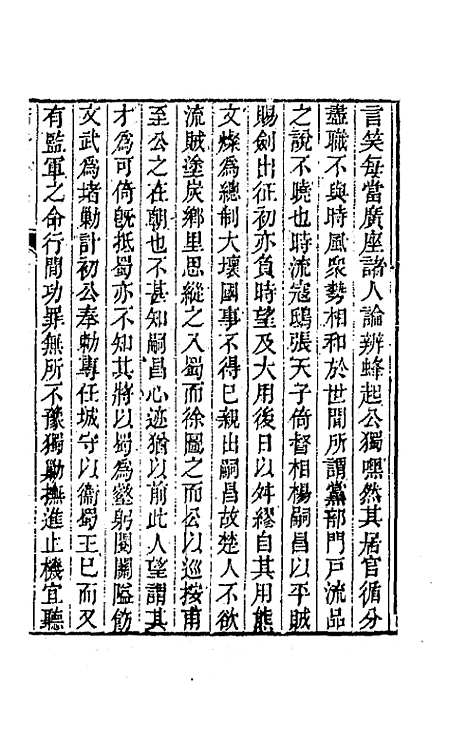 言笑每當廣座諸人論辨蜂起公獨嘿然其居官循分
盡職不與時風衆勢相和於世間所謂黨部門戸流品
之說不曉也時流寇鴟張天子倚督相楊嗣昌以平賊
賜劍出征初亦負時望及大用後日以舛繆自其用熊
文燦為總制大壞國事不得已親出嗣昌故楚人不欲
流賊塗炭鄉里思縱之入蜀而徐圖之而公以巡按甫
至公之在朝也不甚知嗣昌心迹猶以前此人望謂其
才為可倚旣抵蜀亦不知其將以蜀為壑躬閱關隘飭
文武為堵勦計初公奉勅專任城守以衞蜀王已而又
有監軍之命行間功罪無所不豫獨勦撫進止機宜聽